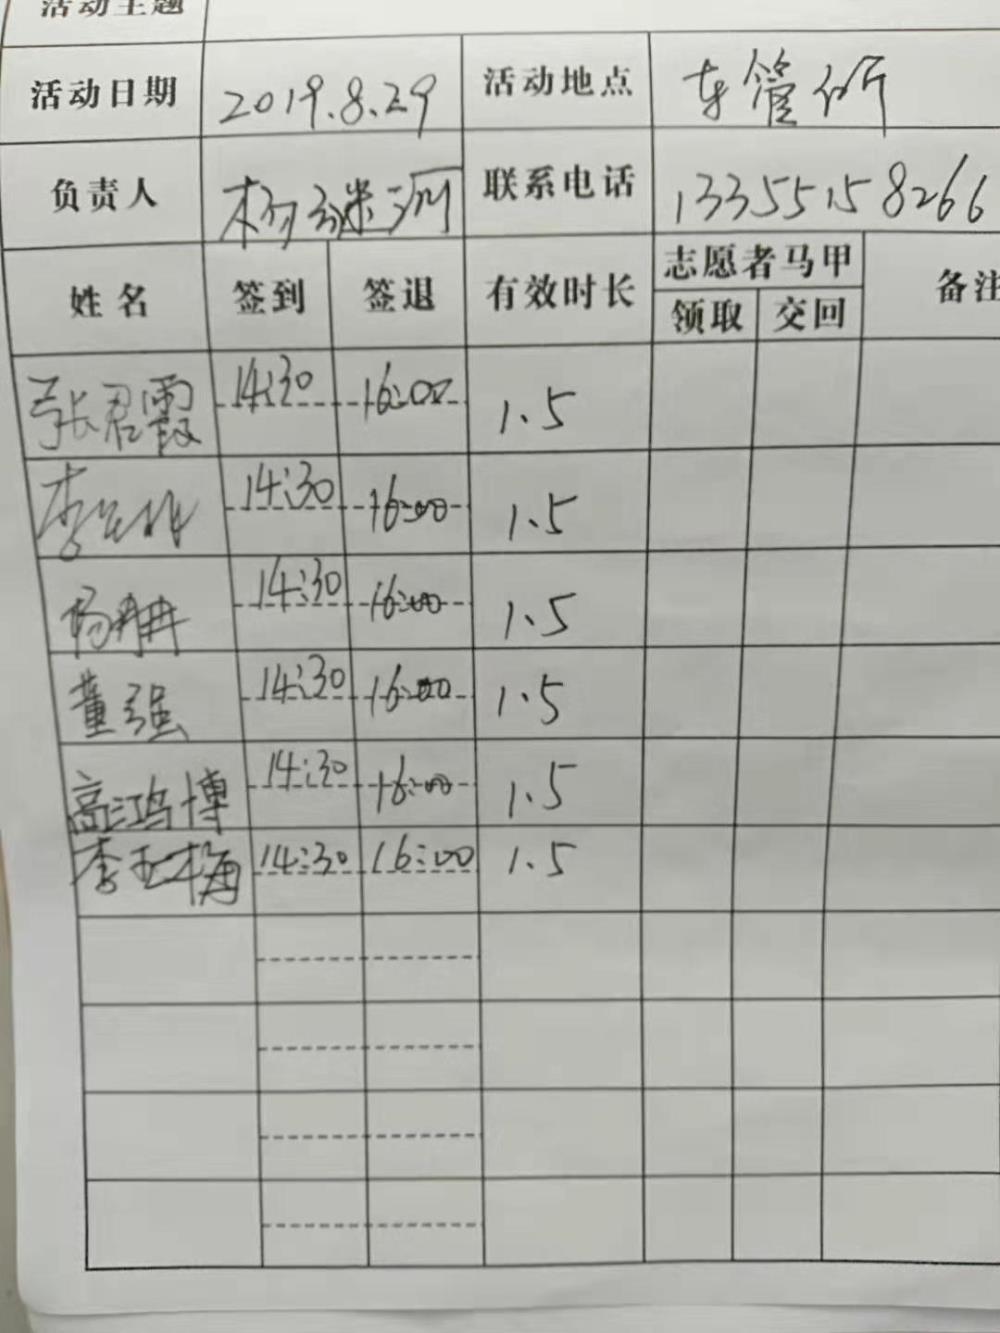 活动主题
活动日期 2019.8.29 活动地点 车管所
负责人 杨谜河 联系电话 13355158266
姓名 签到 签退 有效时长 志愿者马甲 备注
领取 交回
张君霞 14:30 16:00 1.5
李 14:30 16:00 1.5
杨 14:30 16:00 1.5
董强 14:30 16:00 1.5
高鸿博 14:30 16:00 1.5
李亚梅 14:30 16:00 1.5